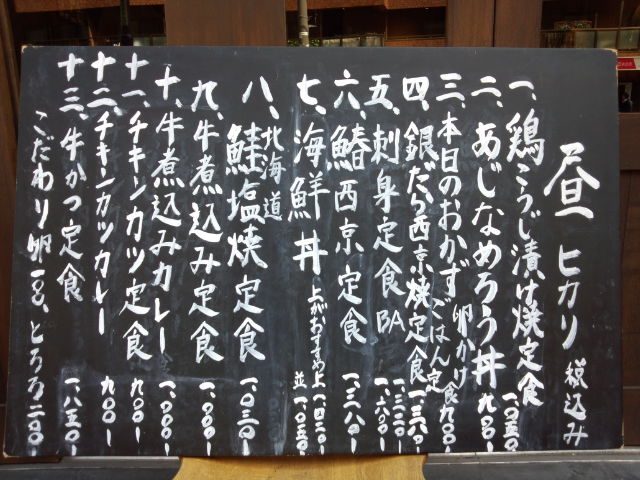 昼 ヒカリ 税込み
一、鶏こうじ漬け焼定食 一、〇五〇
二、あじなめろう丼 九〇〇-
三、本日のおかず ごはん定食 卵かけ 九〇〇-
四、銀だら西京焼定食
五、刺身定食 BA
六、鰆西京定食 一、三八〇-
七、海鮮丼 上がおすすめ 上 並 一、〇五〇
八、北海道鮭塩焼定食 一、〇三〇-
九、牛煮込み定食 一、〇〇〇-
十、牛煮込みカレー 一、〇〇〇-
十一、チキンカツ定食 九〇〇-
十二、チキンカツカレー 九〇〇-
十三、牛かつ定食 一、八五〇-
こだわり卵一ヶ、とろろ二〇〇-